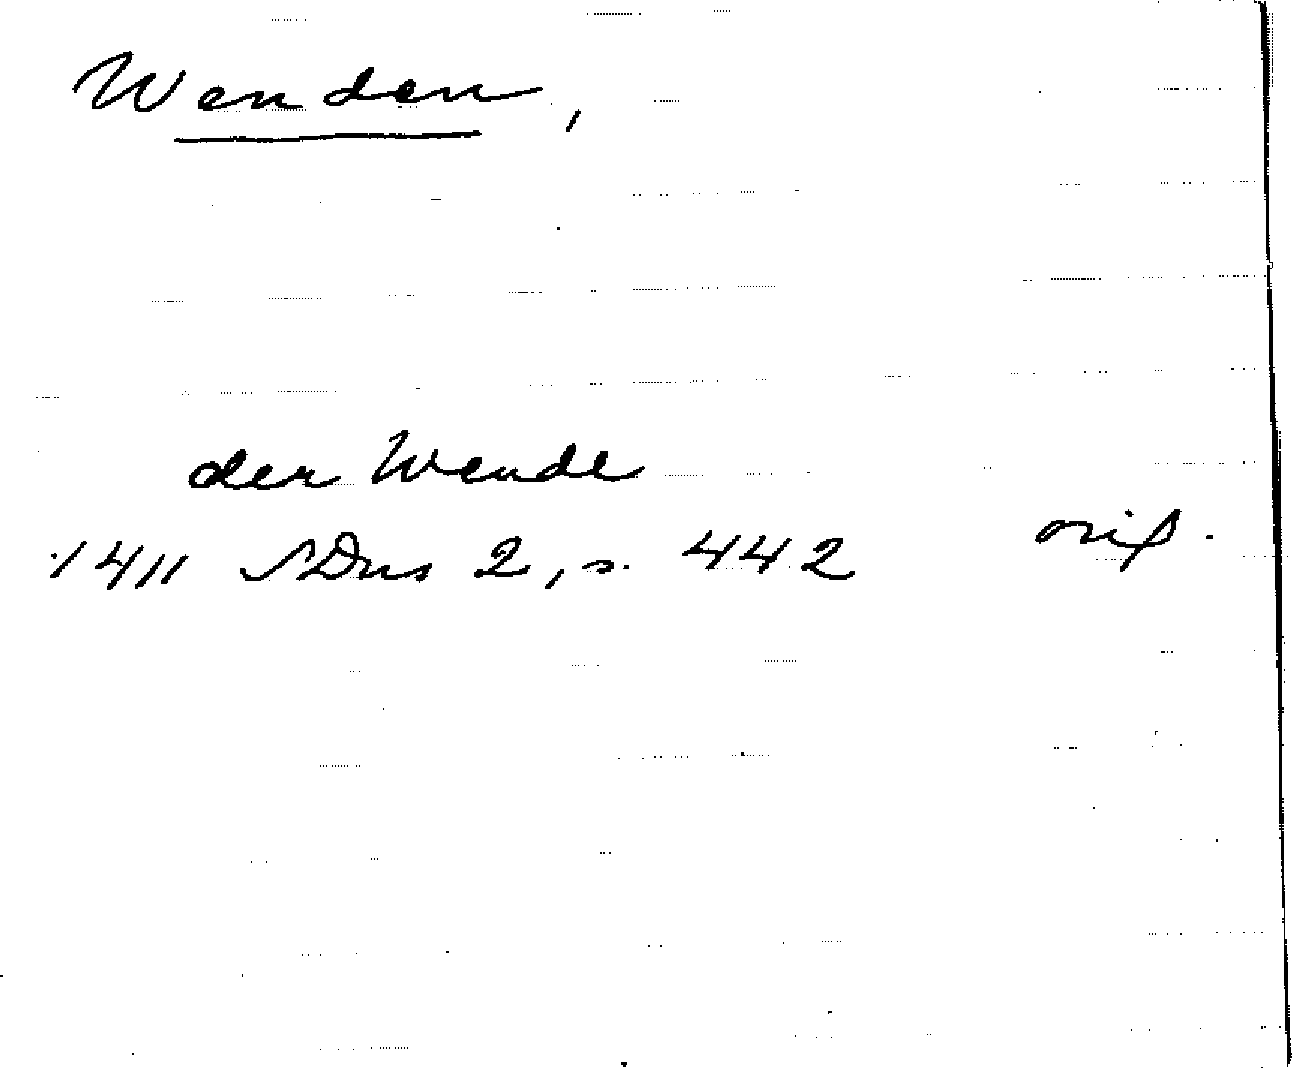 Wenden,
der Wende
1411 SDns 2, s. 442 orig.